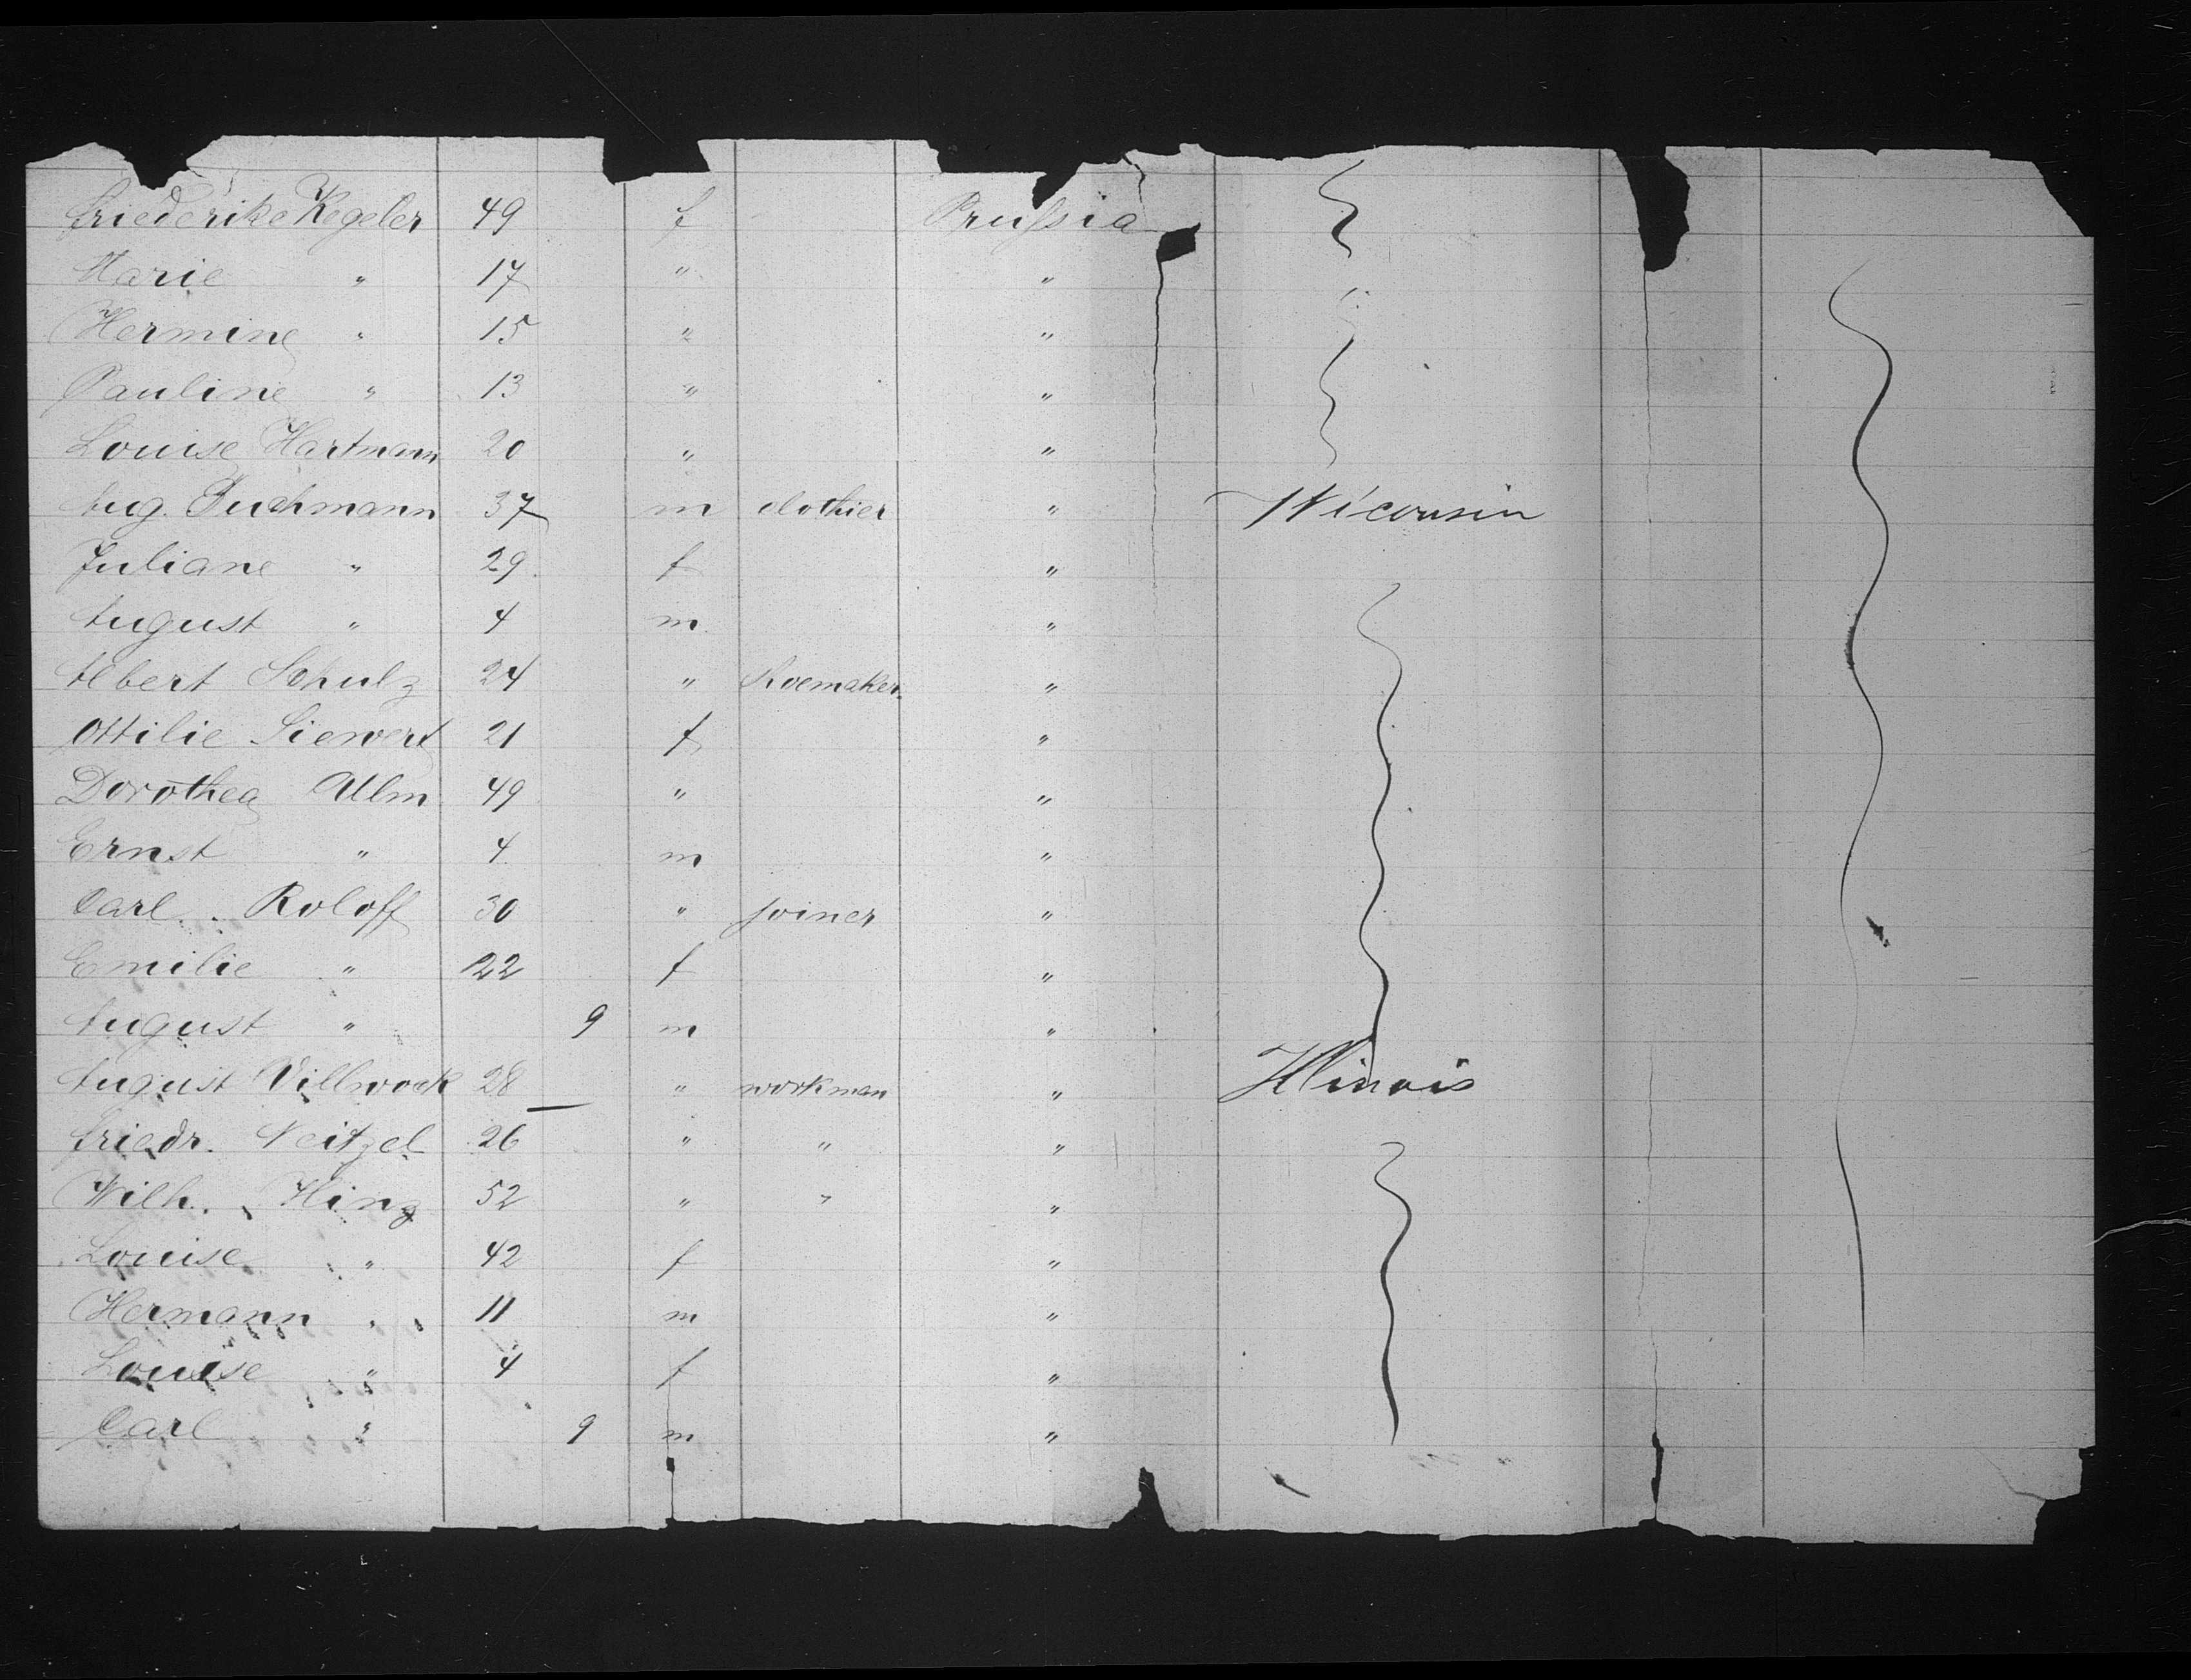 Friederike Kegeler 49 f Prussia
Marie " 17 " "
Hermine " 15 " "
Pauline " 13 " "
Louise Hartmann 20 " "
Aug. Buchmann 37 m clothier " Wiconsin
Juliane " 29 f "
August " 4 m "
Albert Schulz 24 " shoemaker "
Ottilie Siewert 21 f "
Dorothea Ulm 49 " "
Ernst " 4 m "
Carl Roloff 30 " joiner "
Emilie " 22 f "
August " 9 m "
August Villwock 28 " workman " Illinois
Friedr. Neitzel 26 " " "
Wilh. Hinz 52 " " "
Louise " 42 f "
Hermann " 11 m "
Louise " 4 f "
Carl " 9 m "